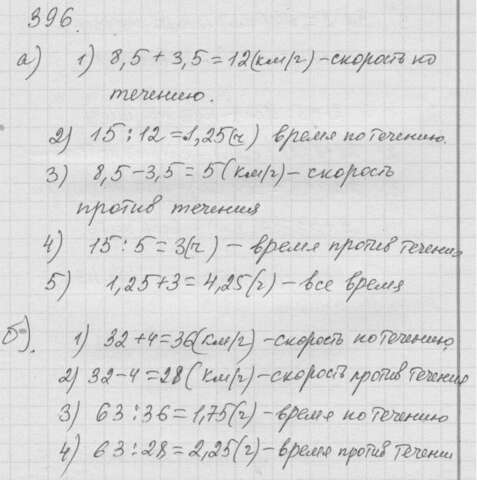 396.
а) 1) 8,5 + 3,5 = 12(км/г) - скорость по
течению.
2) 15 : 12 = 1,25(ч) время по течению.
3) 8,5 - 3,5 = 5(км/г) - скорость
против течения
4) 15 : 5 = 3(ч) - время против течения
5) 1,25 + 3 = 4,25(г) - все время
б). 1) 32 + 4 = 36(км/г) - скорость по течению,
2) 32 - 4 = 28(км/г) - скорость против течения
3) 63 : 36 = 1,75(г) - время по течению
4) 63 : 28 = 2,25(г) - время против течени